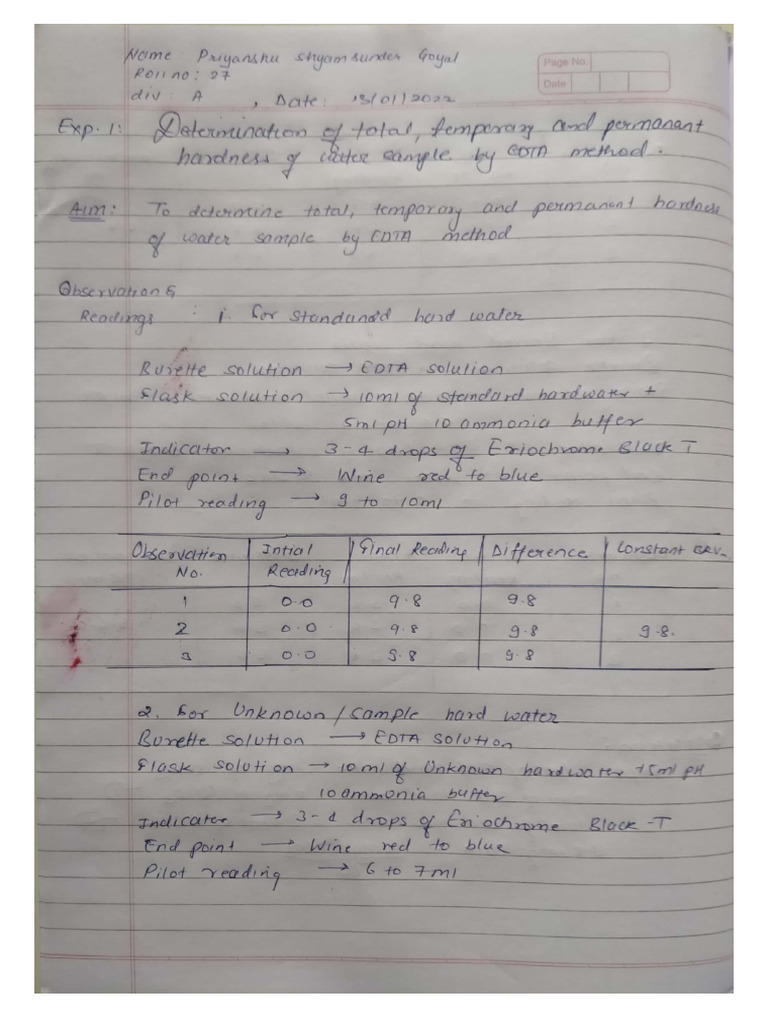 Name: Priyanshu Shyamsunder Goyal
Page No.
Roll no: 27
Date
div: A , Date: 13/01/2022
Exp. 1: Determination of total, temporary and permanant
hardness of water sample by EDTA method.
Aim: To determine total, temporary and permanent hardness
of water sample by EDTA method
Observation &
Readings : 1. For standard hard water
Burette solution → EDTA solution
Flask solution → 10ml of standard hardwater +
5ml pH 10 ammonia buffer
Indicator → 3-4 drops of Eriochrome Black T
End point → Wine red to blue.
Pilot reading → 9 to 10ml
Observation No. | Intial Reading | Final Reading | Difference | Constant BRV.
1 0.0 9.8 9.8
2 0.0 9.8 9.8 9.8.
3 0.0 9.8 9.8
2. For Unknown/sample hard water
Burette solution → EDTA solution
Flask solution → 10ml of Unknown hardwater +5ml pH
10 ammonia buffer
Indicator → 3-4 drops of Eriochrome Black-T
End point → Wine red to blue
Pilot reading → 6 to 7ml